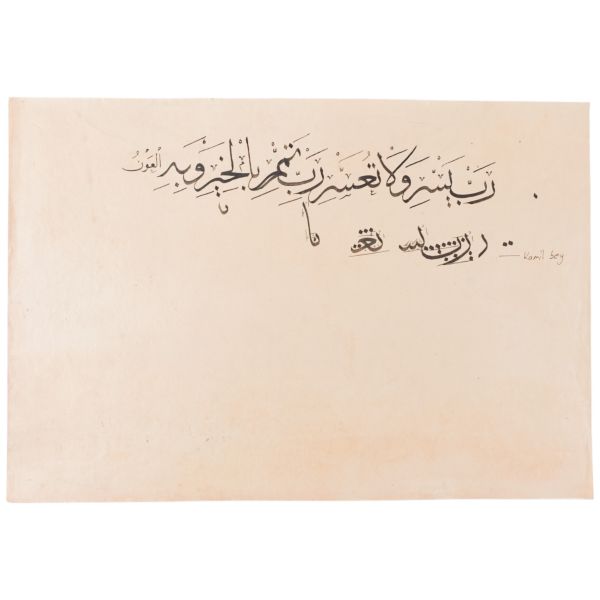 رَبِّ يَسِّرْ وَلَا تُعَسِّرْ رَبِّ تَمِّمْ بِالْخَيْرِ وَبِهِ الْعَوْنُ
Kamil bey